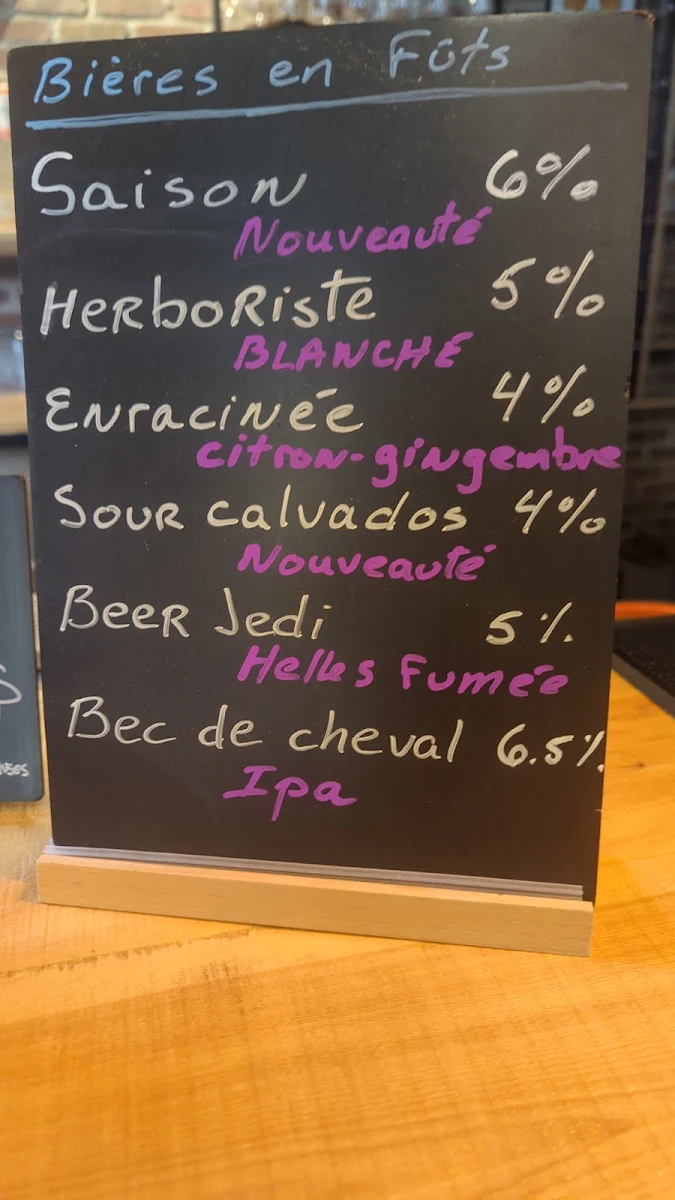 Bières en Fûts
Saison 6%
Nouveauté
HerboRiste 5%
BLANCHE
Enracinée 4%
citron-gingembre
Sour calvados 4%
Nouveauté
Beer Jedi 5%
Helles Fumée
Bec de cheval 6.5%
Ipa